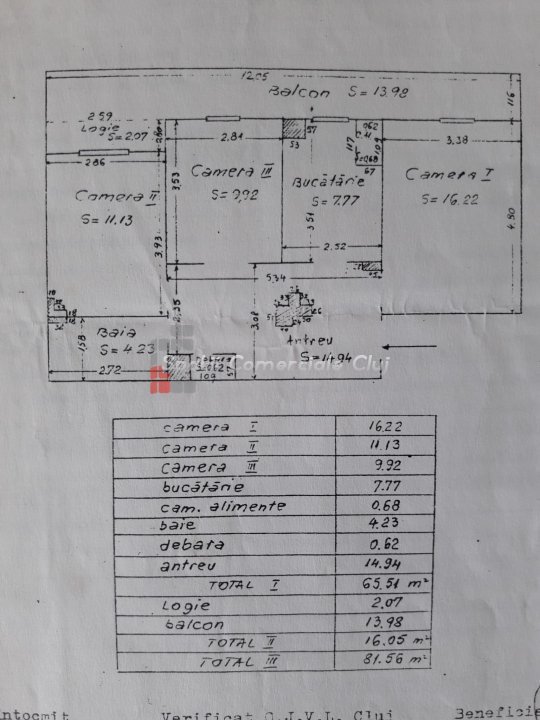 12.05
Balcon S = 13.98
116
2.59
Logie
S = 2.07
2.86
2.84
53
57
062
117
0.68
67
3.38
Camera II
S = 11.13
3.53
3.93
Camera III
S = 9.92
Bucătărie
S = 7.77
3.51
2.52
Camera I
S = 16.22
4.80
5.34
2.35
3.08
Baia
S = 4.23
1.58
2.72
Antreu
S = 14.94
109
57
Spatii Comerciale Cluj
camera I 16.22
camera II 11.13
camera III 9.92
bucătărie 7.77
cam. alimente 0.68
baie 4.23
debara 0.62
antreu 14.94
TOTAL I 65.51 m²
Logie 2.07
balcon 13.98
TOTAL II 16.05 m²
TOTAL III 81.56 m²
Intocmit Verificat C.J.V.L. Cluj Beneficie